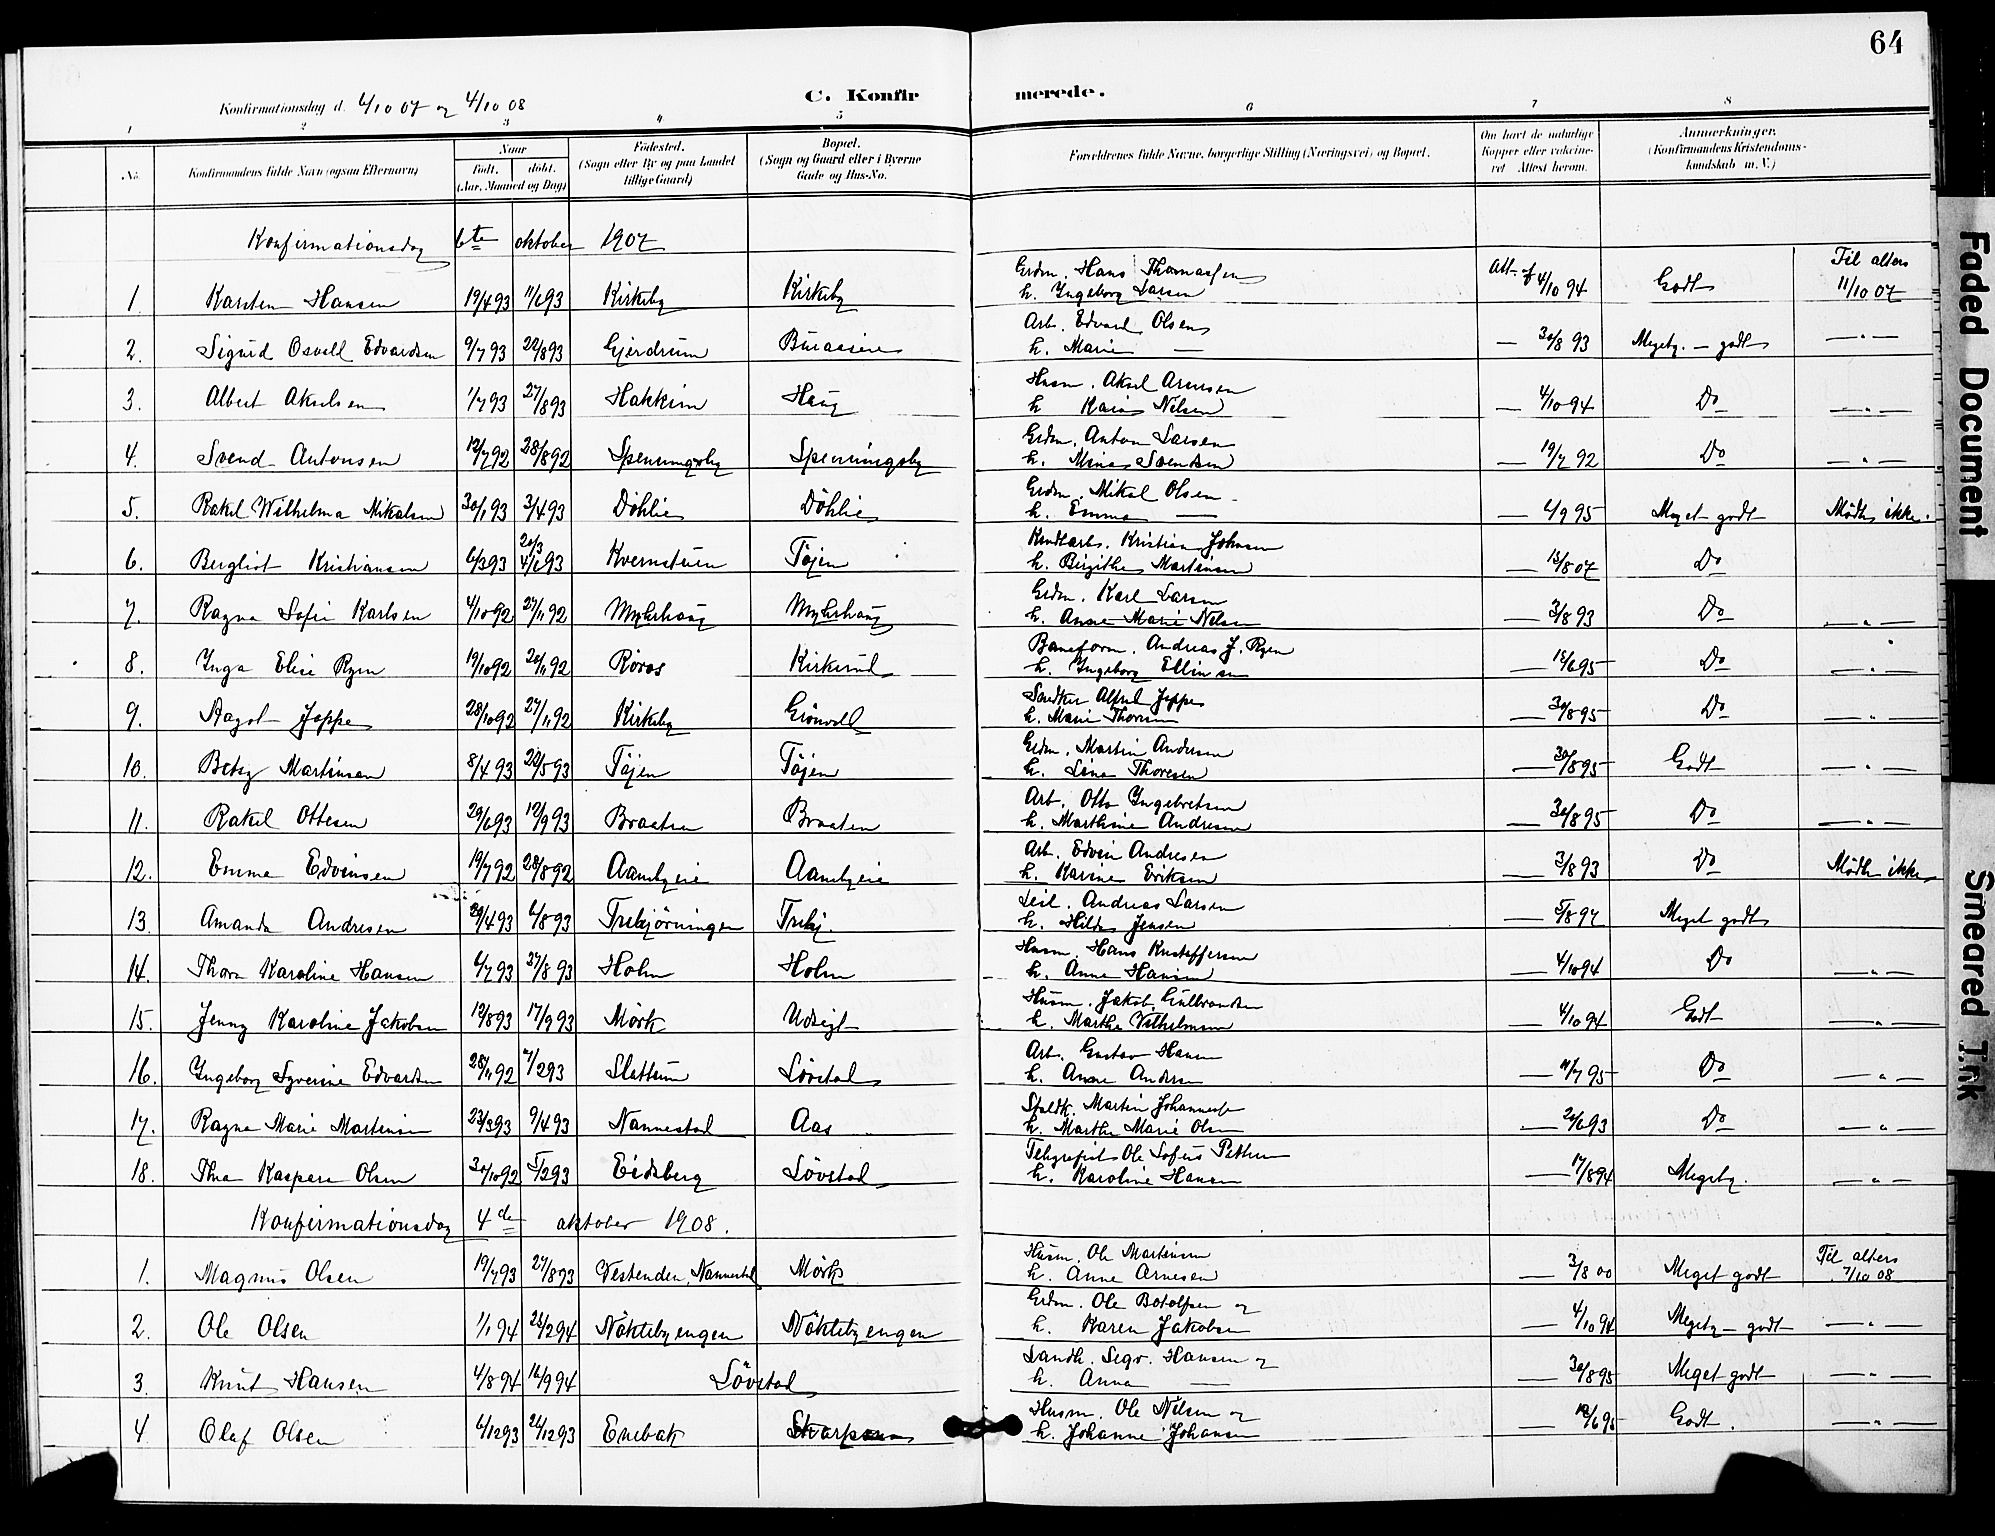 64
Konfirmationsdag d. 6/10 07 og 4/10 08
C. Konfirmerede.
1 2 3 4 5 6 7 8
No. Konfirmandens fulde Navn (ogsaa Efternavn) Naar Födt. döbt. (Aar, Maaned og Dag) Födested. (Sogn eller By og paa Landet tillige Gaard) Bopæl. (Sogn og Gaard eller i Byerne Gade og Hus-No. Forældrenes fulde Navne, borgerlige Stilling (Næringsvei) og Bopæl. Om havt de naturlige Kopper eller vakcineret Attest herom. Anmerkninger. (Konfirmandens Kristendomskundskab m. V.)
Konfirmationsdag 6te oktober 1907
1. Karsten Hansen 19/4 93 11/6 93 Kirkeby Kirkeby Grdm. Hans Thomassen h. Ingeborg Larsen Att. af 4/10 94 Godt Til alters 11/10 07
2. Sigurd Osvald Edvardsen 9/7 93 22/8 93 Gjerdrum Arb. Edvard Olsen h. Marie — — 30/8 93 Megetg. - godt — „ —
3. Albert Akselsen 1/7 93 27/8 93 Hakkim Haug Husm. Aksel Arnesen h Karin Nilsen — 4/10 94 Do — „ —
4. Svend Antonsen 12/7 92 28/8 92 Spenningsby Spenningsby Grdm. Anton Larsen h. Mina Svendsen — 19/7 92 Do — „ —
5. Rakel Wilhelma Mikalsen 30/1 93 3/4 93 Döhlie Döhlie Grdm. Mikal Olsen h. Emma — — 6/9 95 Meget godt Mødte ikke.
6. Bergliot Kristiansen 6/3 93 20/3 4/6 93 Kvernstuen Töjen Kristian Johnsen h. Birgithe Martinsen — 13/8 07 Do
7. Ragna Sofie Karlsen 4/10 92 27/11 92 Myhrhaug Myhrhaug Grdm. Karl Larsen h. Anne Marie Nilsen — 3/8 93 Do — „ —
8. Inga Elise Ryen 19/10 92 20/11 92 Röros Kirkerud Baneform. Andreas J. Ryen h. Ingeborg Ellinsen — 15/6 95 Do — „ —
9. Aagot Jeppe 28/10 92 27/11 92 Kirkeby Grönvold Snedker Alfred Jeppe h. Marie Thorsen — 30/8 95 Do — „ —
10. Betsy Martinsen 8/4 93 22/5 93 Töjen Töjen Grdm. Martin Andersen h. Lina Thoresen — 30/8 95 Godt — „ —
11. Rakel Ottesen 29/6 93 12/9 93 Braaten Braaten Arb. Otto Ingebretsen h. Marthine Andresen — 30/8 95 Do — „ —
12. Emma Edvinsen 19/7 92 28/8 92 Aambyeie Aambyeie Arb. Edvin Andresen h. Karine Eriksen — 3/8 93 Do Mødte ikke
13. Amanda Andresen 29/4 93 6/8 93 Leil. Andreas Larsen h. Hilda Jensen — 5/8 97 Meget godt
14. Thora Karoline Hansen 6/7 93 27/8 93 Holm Holm Husm. Hans Kristoffersen h. Anna Hansen — 4/10 94 Do — „ —
15. Jenny Karoline Jakobsen 12/8 93 17/9 93 Mørk Udsigt Husm. Jakob Gulbrandsen h. Marthe Vilhelmsen — 4/10 94 Godt — „ —
16. Ingeborg Syverine Edvardsen 28/11 92 7/2 93 Slattum Lövstad Arb. Gustav Hansen h. Anne Andersen — 11/7 95 Do — „ —
17. Ragna Marie Martinsen 23/3 93 9/4 93 Nannestad Aas Martin Johannes h. Marthe Marie Olsen — 20/6 93 Do — „ —
18. Thea Kaspara Olsen 30/10 92 5/2 93 Eidsberg Lövstad Telegrafist Ole Sofus Pettersen h. Karoline Hansen — 17/8 94 Megetg. — „ —
Konfirmationsdag 4de oktober 1908.
1. Magnus Olsen 19/7 93 27/8 93 Vestenden, Nannestad Mørk Husm. Ole Martinsen h. Anne Arnesen — 3/8 00 Meget godt Til alters 7/10 08
2. Ole Olsen 1/1 94 25/2 94 Nöklebyengen Nöklebyengen Grdm. Ole Botolfsen og h. Karen Jakobsen — 4/10 94 Megetg - godt — „ —
3. Knut Hansen 4/8 94 16/9 94 Lövstad Landh. Segv. Hansen og h. Anna — — 30/8 95 Meget godt — „ —
4 Olaf Olsen 6/12 93 26/12 93 Enebak Husm. Ole Nilsen og h. Johanne Johansen — 12/6 95 Godt. — „ —
Faded Document
Smeared Ink